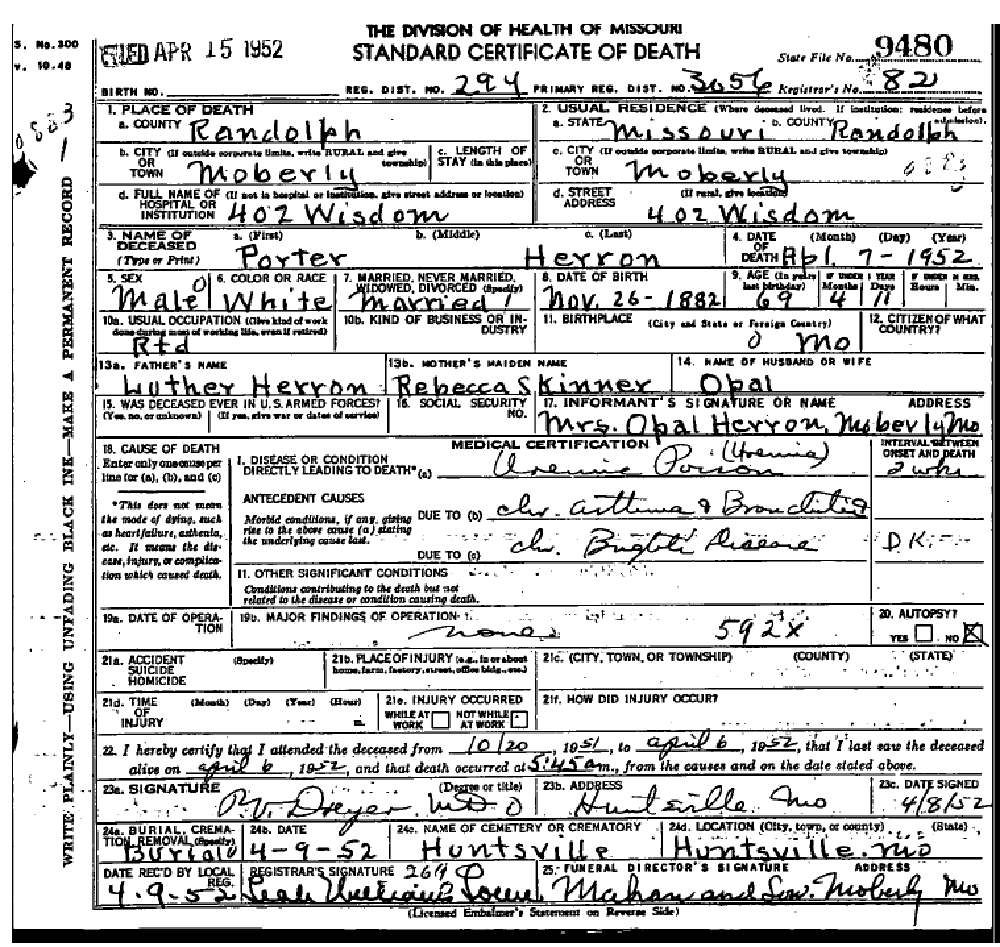 THE DIVISION OF HEALTH OF MISSOURI
S. No. 300
v. 10-48
FILED APR 15 1952 STANDARD CERTIFICATE OF DEATH State File No. 9480
BIRTH NO. REG. DIST. NO. 294 PRIMARY REG. DIST. NO. 3056 Registrar's No. 82
1. PLACE OF DEATH
a. COUNTY Randolph
2. USUAL RESIDENCE (Where deceased lived. If institution: residence before admission).
a. STATE Missouri b. COUNTY Randolph
b. CITY (If outside corporate limits, write RURAL and give township) OR TOWN Moberly
c. LENGTH OF STAY (in this place)
c. CITY (If outside corporate limits, write RURAL and give township) OR TOWN Moberly
0883
d. FULL NAME OF HOSPITAL OR INSTITUTION (If not in hospital or institution, give street address or location) 402 Wisdom
d. STREET ADDRESS (If rural, give location) 402 Wisdom
3. NAME OF DECEASED (Type or Print) a. (First) b. (Middle) c. (Last)
Porter Herron
4. DATE OF DEATH (Month) (Day) (Year) Apl. 7-1952
5. SEX Male 0
6. COLOR OR RACE White
7. MARRIED, NEVER MARRIED, WIDOWED, DIVORCED (Specify) Married 1
8. DATE OF BIRTH Nov. 26-1882
9. AGE (In years last birthday) 69 IF UNDER 1 YEAR Months 4 Days 11 IF UNDER 24 HRS. Hours Min.
10a. USUAL OCCUPATION (Give kind of work done during most of working life, even if retired) Rtd
10b. KIND OF BUSINESS OR INDUSTRY
11. BIRTHPLACE (City and State or Foreign Country) 0 Mo
12. CITIZEN OF WHAT COUNTRY?
13a. FATHER'S NAME Luther Herron
13b. MOTHER'S MAIDEN NAME Rebecca Skinner
14. NAME OF HUSBAND OR WIFE Opal
15. WAS DECEASED EVER IN U.S. ARMED FORCES? (Yes, no, or unknown) (If yes, give war or dates of service)
16. SOCIAL SECURITY NO.
17. INFORMANT'S SIGNATURE OR NAME ADDRESS
Mrs. Opal Herron, Moberly Mo
18. CAUSE OF DEATH
Enter only one cause per line for (a), (b), and (c)
*This does not mean the mode of dying, such as heart failure, asthenia, etc. It means the disease, injury, or complication which caused death.
MEDICAL CERTIFICATION
INTERVAL BETWEEN ONSET AND DEATH
I. DISEASE OR CONDITION DIRECTLY LEADING TO DEATH* (a) Uremic Poison (Uremia) 2 wks
ANTECEDENT CAUSES
Morbid conditions, if any, giving rise to the above cause (a) stating the underlying cause last.
DUE TO (b) chr. asthma & Bronchitis
DUE TO (c) chr. Brights Disease D K
11. OTHER SIGNIFICANT CONDITIONS
Conditions contributing to the death but not related to the disease or condition causing death.
19a. DATE OF OPERATION
19b. MAJOR FINDINGS OF OPERATION none 592X
20. AUTOPSY? YES NO X
21a. ACCIDENT SUICIDE HOMICIDE (Specify)
21b. PLACE OF INJURY (e.g., in or about home, farm, factory, street, office bldg., etc.)
21c. (CITY, TOWN, OR TOWNSHIP) (COUNTY) (STATE)
21d. TIME OF INJURY (Month) (Day) (Year) (Hour)
21e. INJURY OCCURRED WHILE AT WORK NOT WHILE AT WORK
21f. HOW DID INJURY OCCUR?
22. I hereby certify that I attended the deceased from 10/20, 1951, to april 6, 1952, that I last saw the deceased
alive on april 6, 1952, and that death occurred at 5:45 am., from the causes and on the date stated above.
23a. SIGNATURE (Degree or title) P.V. Dreyer MD 0
23b. ADDRESS Huntsville, Mo
23c. DATE SIGNED 4/8/52
24a. BURIAL, CREMATION, REMOVAL (Specify) Burial 0
24b. DATE 4-9-52
24c. NAME OF CEMETERY OR CREMATORY Huntsville
24d. LOCATION (City, town, or county) (State) Huntsville. Mo
DATE REC'D BY LOCAL REG. 4-9-52
REGISTRAR'S SIGNATURE 269 Leah Williams
25. FUNERAL DIRECTOR'S SIGNATURE ADDRESS
Mahan and Son. Moberly Mo
(Licensed Embalmer's Statement on Reverse Side)
0883
1
WRITE PLAINLY—USING UNFADING BLACK INK—MAKE A PERMANENT RECORD